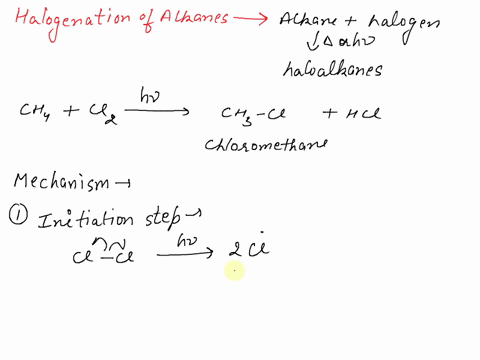 Halogenation of Alkanes → Alkane + halogen
↓ Δ or hν
haloalkanes
CH₄ + Cl₂ —hν→ CH₃–Cl + HCl
Chloromethane
Mechanism →
① Initiation step →
Cl–Cl —hν→ 2Cl•